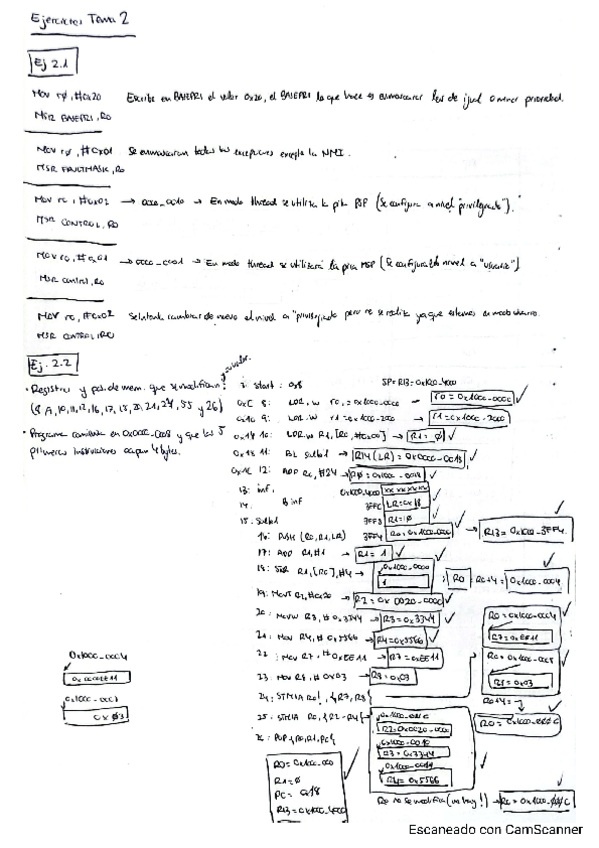 Ejercicios Tema 2
Ej 2.1
Mov r0, #0x20
Escribe en BASEPRI el valor 0x20, el BASEPRI lo que hace es enmascarar los de igual o menor prioridad.
MSR BASEPRI, R0
Mov r0, #0x01
Se enmascaran todas las excepciones excepto la NMI.
MSR FAULTMASK, R0
Mov r0, #0x02 → → En modo thread se utiliza la pila PSP (Se configura a nivel "privilegiado").
MSR CONTROL, R0
Mov r0, #0x01 → → En modo thread se utilizará la pila MSP (Se configura el nivel a "usuario")
MSR control, R0
Mov r0, #0x02
Se intenta cambiar de nuevo el nivel a "privilegiado pero no se realiza ya que estamos en modo usuario.
MSR CONTROL, R0
Ej. 2.2
• Registros y pos. de mem. que se modifican
(8, 9, 10, 11, 12, 16, 17, 18, 20, 21, 24, 25 y 26)
• Programa comienza en 0x0000-0008 y que las 5
primeras instrucciones ocupan 4 bytes.
7: start: 0x8
SP=R13=0x1000-4000
0xC 8: LDR.W r0,=0x1000-0000
r0=0x1000-0000
0x10 9: LDR.W r1=0x1000-2000
r1=0x1000-2000
0x14 10: LDR.W R1,[R0,#0x00] →
R1=0
0x18 11: BL subt1 →
R14(LR)=0x0000-0018
0x1C 12: ADD R0,#24 →
13: inf:
14. B inf
15. subt1
16: PUSH {R0,R1,LR}
LR=0x18
R1=0
R0=0x1000-0000
R13=0x1000-3FF4
17: ADD R1,#1 →
R1=1
18: STR R1,[R0],#4 →
0x1000-0000
1
R0: R0+4=0x1000-0004
19: MOVT R2,#0x20 →
R2=0x0020-0000
20: MOVW R3,#0x3344 →
R3=0x3344
21: MOV R4,#0x5566 →
R4=0x5566
22: MOV R7,#0xEE11 →
R7=0xEE11
23: MOV R8,#0x03 →
R8=0x03
24: STMIA R0!,{R7,R8}
R0=0x1000-0004
R7=0xEE11
R0=0x1000-0008
R8=0x03
R0+4=
R0=0x1000-000C
25: STMIA R0,{R2-R4}
0x1000-000C
R2=0x0020-0000
0x1000-0010
R3=0x3344
0x1000-0014
R4=0x5566
R0 no se modifica (no hay !) →
R0=0x1000-000C
26: POP {R0,R1,PC}
R0=0x1000-000
R1=0
PC=0x18
R13=0x1000-4000
0x1000-0004
0x0000EE11
0x03
Escaneado con CamScanner